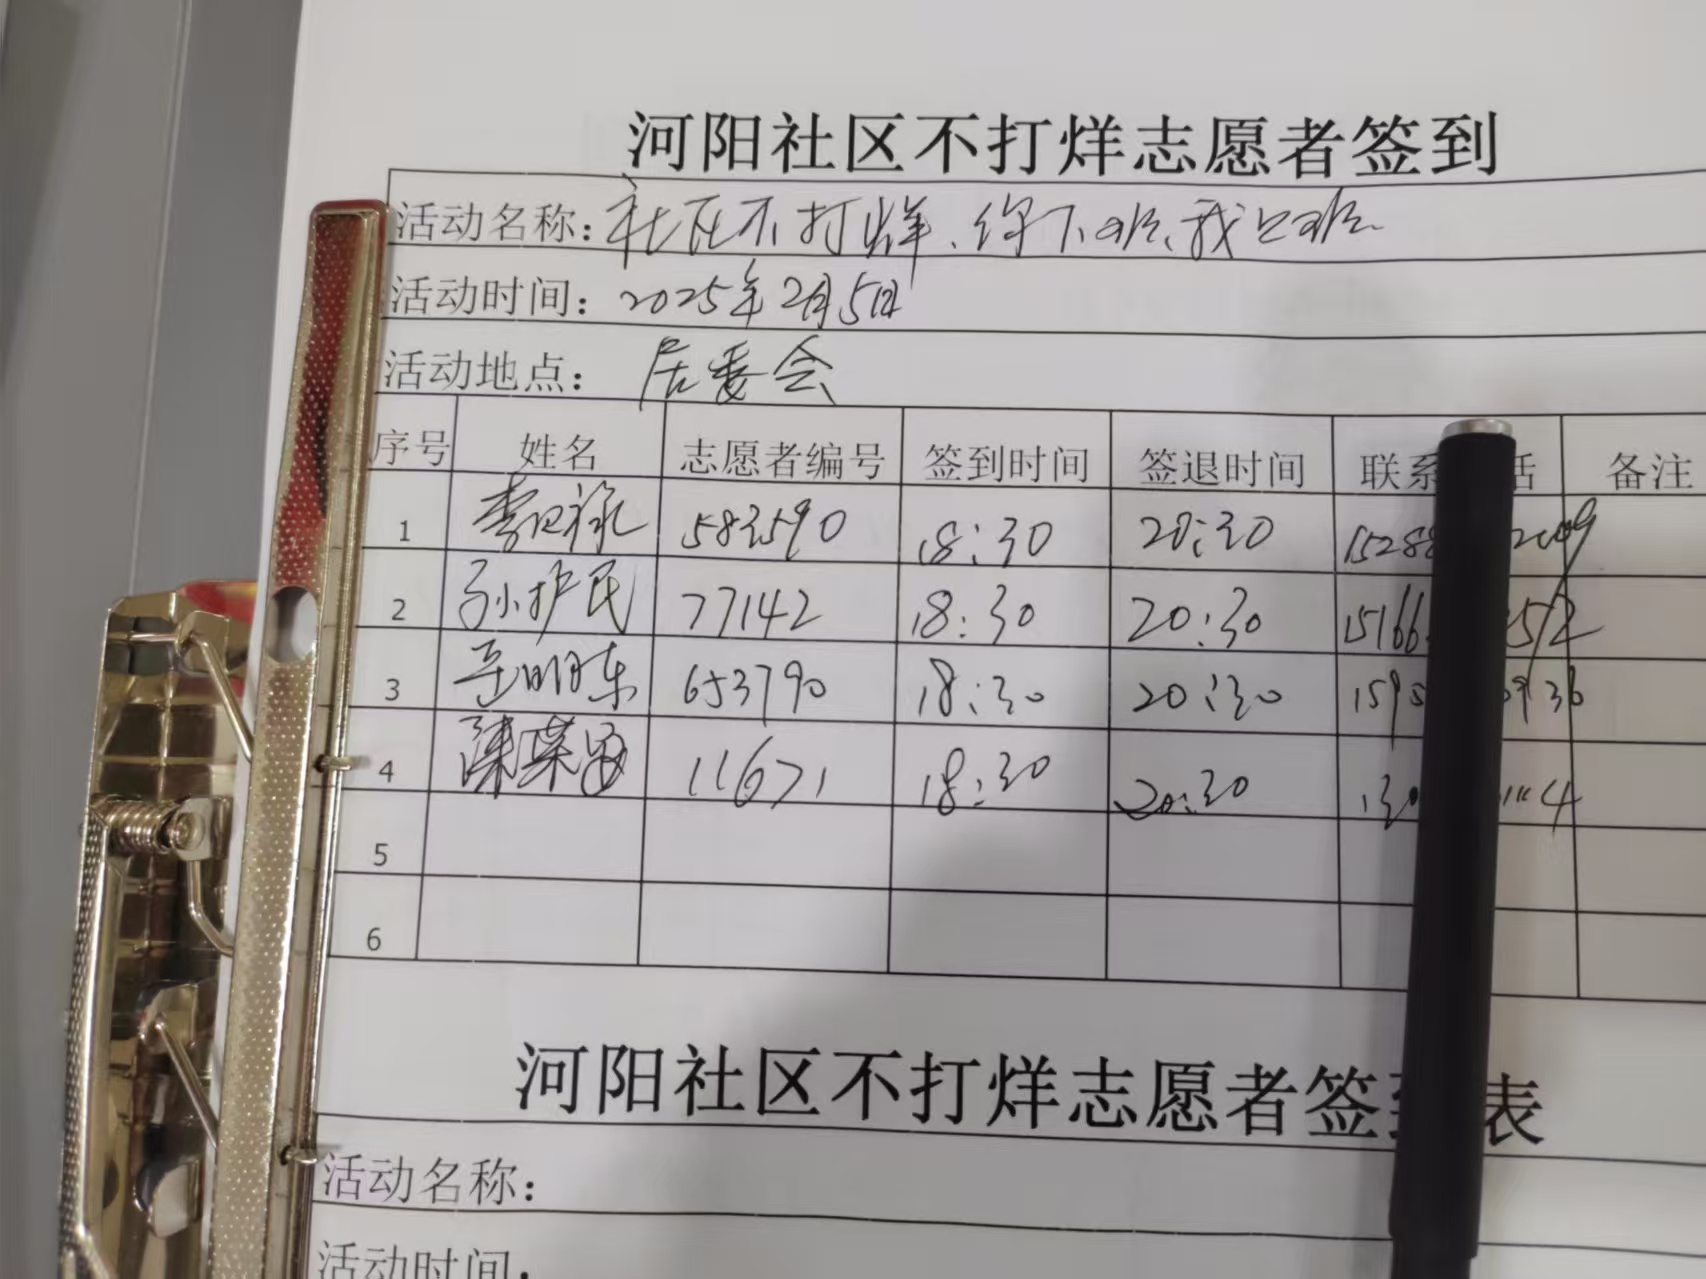 河阳社区不打烊志愿者签到
活动名称：社区不打烊、你下班、我上班
活动时间：2025年2月5日
活动地点：居委会
序号 姓名 志愿者编号 签到时间 签退时间 联系 话 备注
1 583590 18:30 20:30 15288 2009
2 孙护民 77142 18:30 20:30 15166 252
3 653790 18:30 20:30 1595 0936
4 11671 18:30 20:30 130
5
6
河阳社区不打烊志愿者签 表
活动名称：
活动时间：